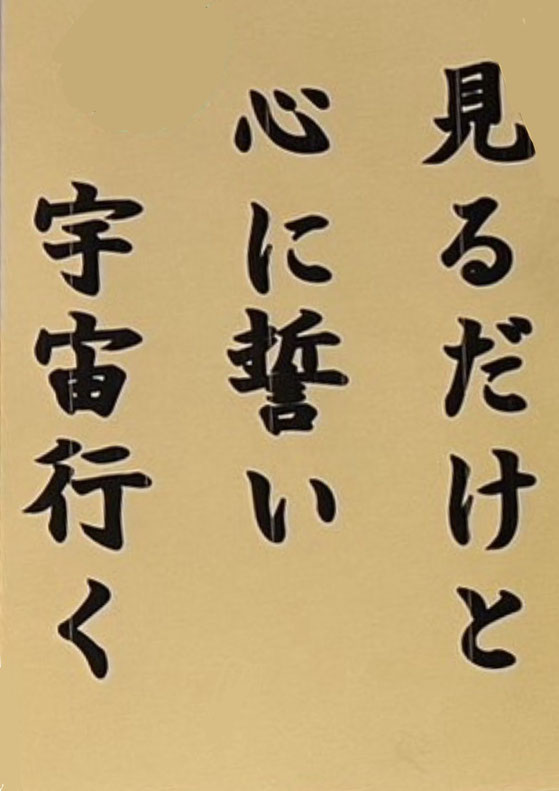 見るだけと
心に誓い
宇宙行く